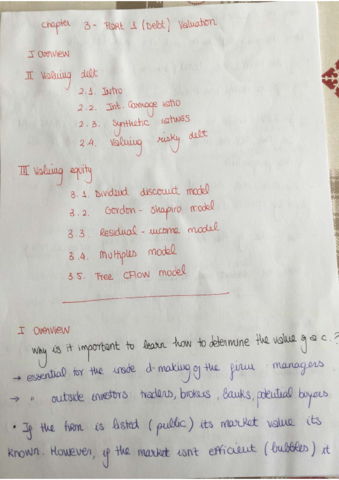 Chapter 3 - PART 1 (Debt) Valuation
I Overview
II Valuing debt
2.1. Intro
2.2. Int. Coverage ratio
2.3. Synthetic ratings
2.4. Valuing risky debt
III Valuing equity
3.1. Dividend discount model
3.2. Gordon - Shapiro model
3.3. Residual - income model
3.4. Multiples model
3.5. Free CFlow model
I Overview
Why is it important to learn how to determine the value of a c.?
→ essential for the inside d-making of the firm managers
→ " outside investors traders, brokers, banks, potential buyers.
• If the firm is listed (public) its market value its
known. However, if the market isn't efficient (bubbles) it